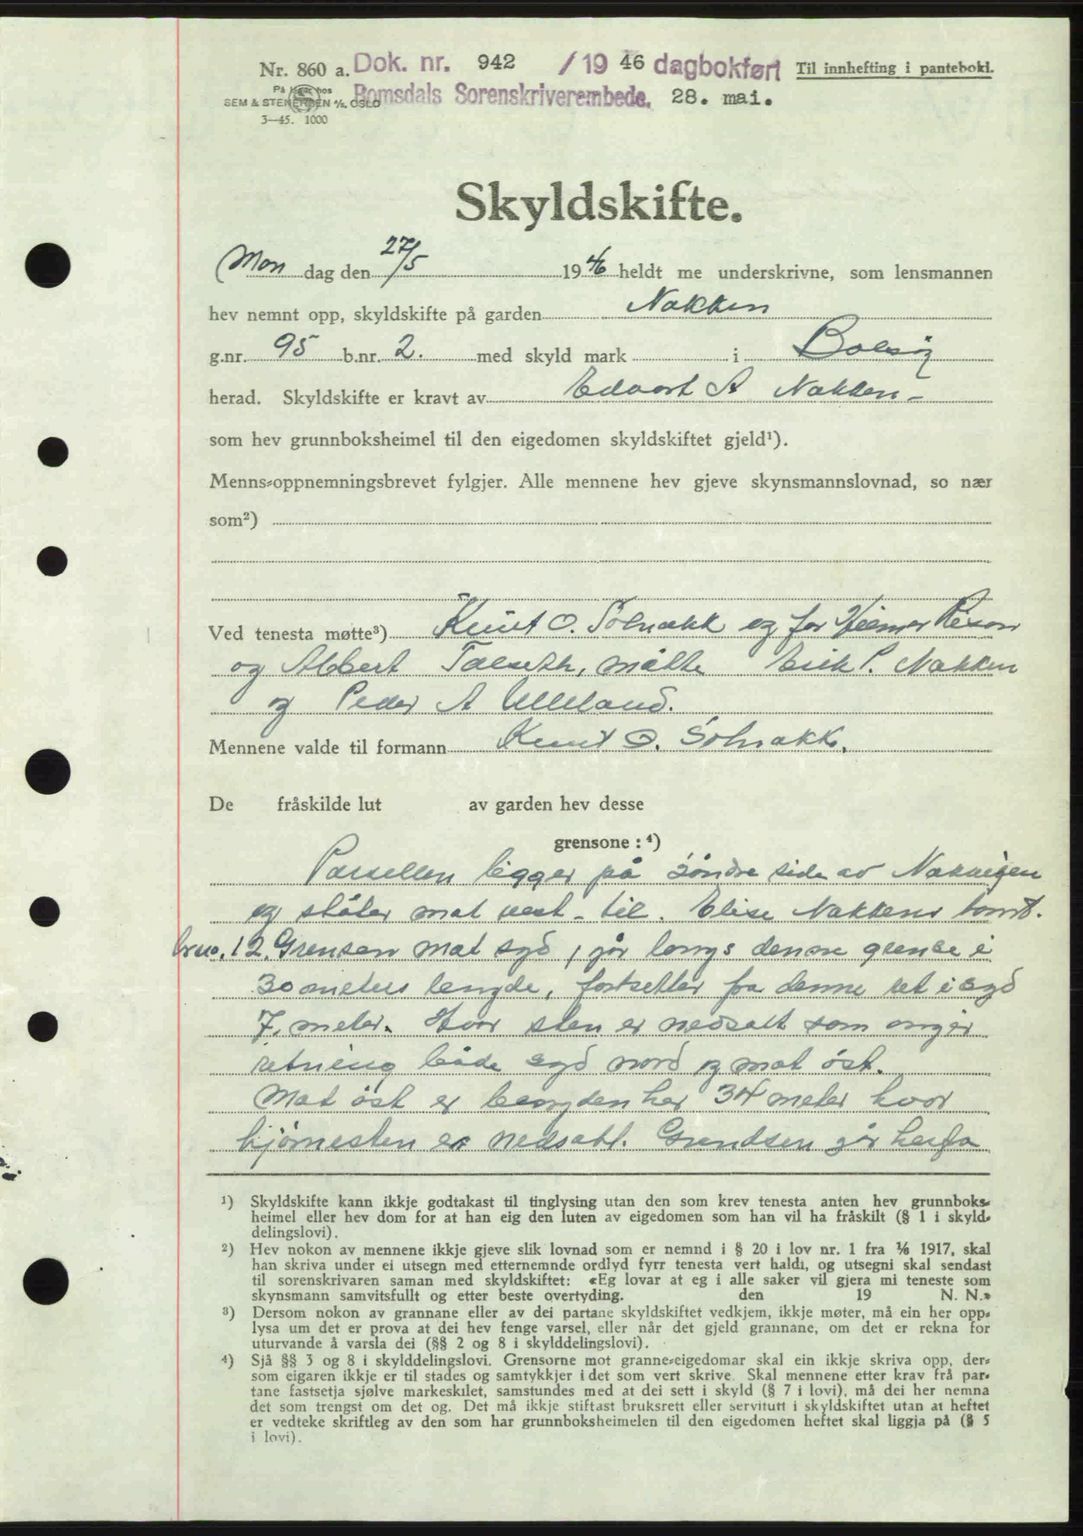 Nr. 860 a. Dok. nr. 942 / 19 46 dagbokført Til innhefting i pantebokl.
På lager hos
SEM & STENERSEN A/S. OSLO Romsdals Sorenskriverembede. 28. mai.
3—45. 1000
Skyldskifte.
Mon dag den 27/5 1946 heldt me underskrivne, som lensmannen
hev nemnt opp, skyldskifte på garden Nakken
g.nr. 95 b.nr. 2. med skyld mark i Bolsøy
herad. Skyldskifte er kravt av Edvart A Nakken -
som hev grunnboksheimel til den eigedomen skyldskiftet gjeld¹).
Menns-oppnemningsbrevet fylgjer. Alle mennene hev gjeve skynsmannslovnad, so nær
som²)
Ved tenesta møtte³) Knut O. Solnakk og for Hjelmar
og Albert Talseth, møtte Erik P. Nakken
og Peder A Ulleland.
Mennene valde til formann Knut O. Solnakk.
De fråskilde lut av garden hev desse
grensone : ⁴)
Parsellen ligger på söndre side av
og støter mot vest - til. Elise Nakkens tomt.
brno. 12. Grensen mot syd, går langs denne grense i
30 meters lengde, fortsetter fra denne ret i syd
7. meter. Hvor sten er nedsatt som angir
retning både syd nord og mot öst.
Mot öst er lengden her 34 meter hvor
hjørnesten er nedsatt. Grendsen går herfra
¹) Skyldskifte kann ikkje godtakast til tinglysing utan den som krev tenesta anten hev grunnboks-
heimel eller hev dom for at han eig den luten av eigedomen som han vil ha fråskilt (§ 1 i skyld-
delingslovi).
²) Hev nokon av mennene ikkje gjeve slik lovnad som er nemnd i § 20 i lov nr. 1 fra 1/6 1917, skal
han skriva under ei utsegn med etternemnde ordlyd fyrr tenesta vert haldi, og utsegni skal sendast
til sorenskrivaren saman med skyldskiftet: «Eg lovar at eg i alle saker vil gjera mi teneste som
skynsmann samvitsfullt og etter beste overtyding. den 19 N. N.»
³) Dersom nokon av grannane eller av dei partane skyldskiftet vedkjem, ikkje møter, må ein her opp-
lysa um det er prova at dei hev fenge varsel, eller når det gjeld grannane, om det er rekna for
uturvande å varsla dei (§§ 2 og 8 i skylddelingslovi).
⁴) Sjå §§ 3 og 8 i skylddelingslovi. Grensorne mot granne-eigedomar skal ein ikkje skriva opp, der-
som eigaren ikkje er til stades og samtykkjer i det som vert skrive. Skal mennene etter krav frå par-
tane fastsetja sjølve markeskilet, samstundes med at dei sett i skyld (§ 7 i lovi), må dei her nemna
det som trengst om det og. Det må ikkje stiftast bruksrett eller servitutt i skyldskiftet utan at heftet
er vedteke skriftleg av den som har grunnboksheimelen til den eigedomen heftet skal liggja på (§ 5
i lovi).